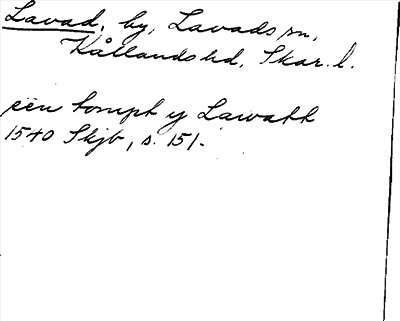 Lavad, by, Lavads sn,
Kållands hd, Skar. l.
eën tompt y Lawatt
1540 Skjb, s. 151.